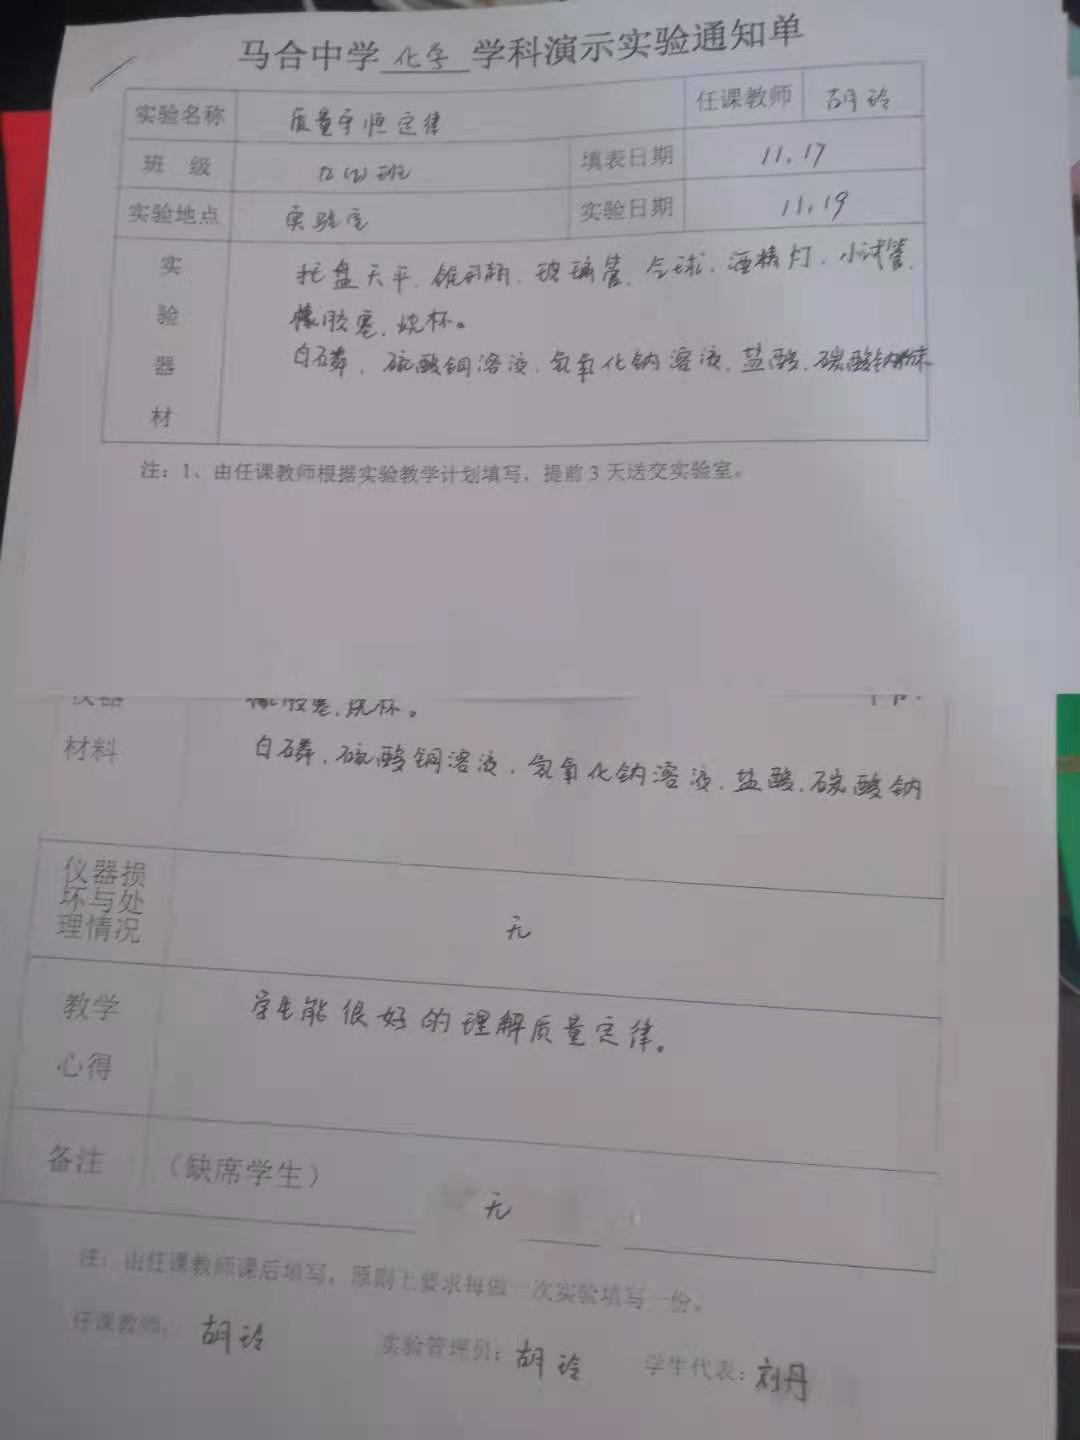 马合中学 化学 学科演示实验通知单
实验名称 质量守恒定律 任课教师 胡玲
班 级 九(1)班 填表日期 11.17
实验地点 实验室 实验日期 11.19
实验器材
托盘天平、锥形瓶、玻璃管、气球、酒精灯、小试管、
橡胶塞、烧杯。
白磷、硫酸铜溶液、氢氧化钠溶液、盐酸、碳酸钠粉末
注：1、由任课教师根据实验教学计划填写，提前3天送交实验室。
仪器 橡胶塞、烧杯。
材料 白磷、硫酸铜溶液、氢氧化钠溶液、盐酸、碳酸钠
仪器损
坏与处
理情况 无
教学 学生能很好的理解质量定律。
心得
备注 （缺席学生） 无
注：由任课教师课后填写，原则上要求每做一次实验填写一份。
任课教师：胡玲 实验管理员：胡玲 学生代表：刘丹